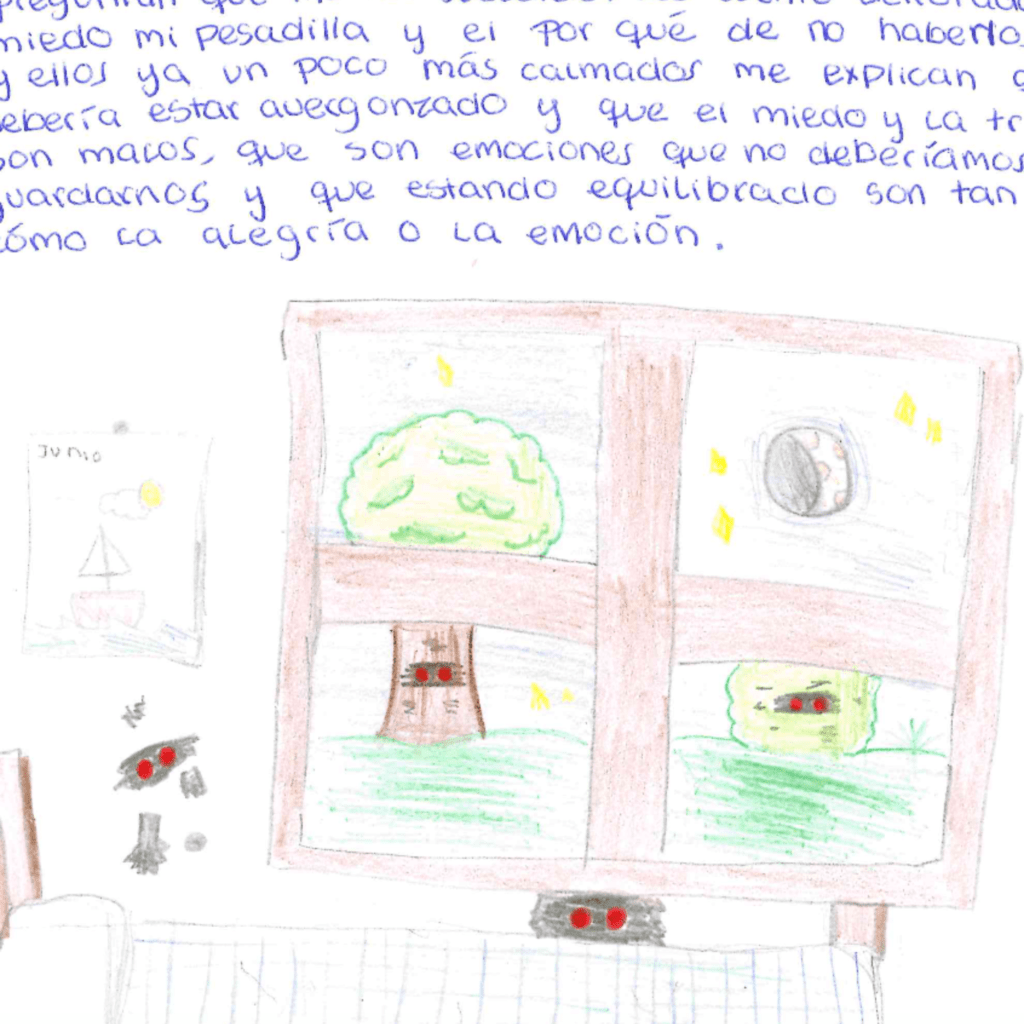 miedo mi pesadilla y el por qué de no haberlo
y ellos ya un poco más calmados me explican q
ebería estar avergonzado y que el miedo y la tr
on malos, que son emociones que no deberíamos
guardarnos y que estando equilibrado son tan
cómo la alegría o la emoción.
Junio